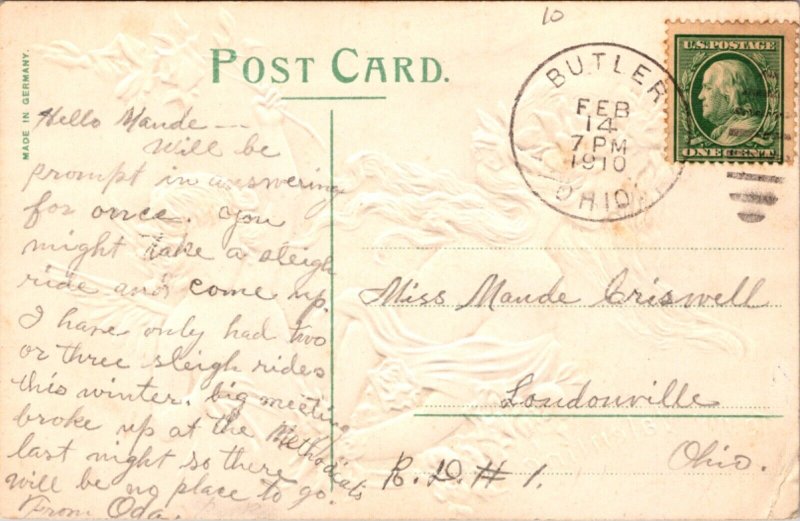 10
POST CARD.
MADE IN GERMANY.
BUTLER
FEB
14
7 PM
1910
OHIO
U.S. POSTAGE
ONE CENT
Hello Maude —
Will be
prompt in answering
for once. You
might take a sleigh
ride and come up.
I have only had two
or three sleigh rides
this winter. big meeting
broke up at the Methodists
last night so there
will be no place to go.
From Oda.
Miss Maude Criswell
Loudonville
Ohio.
R. D. # 1.